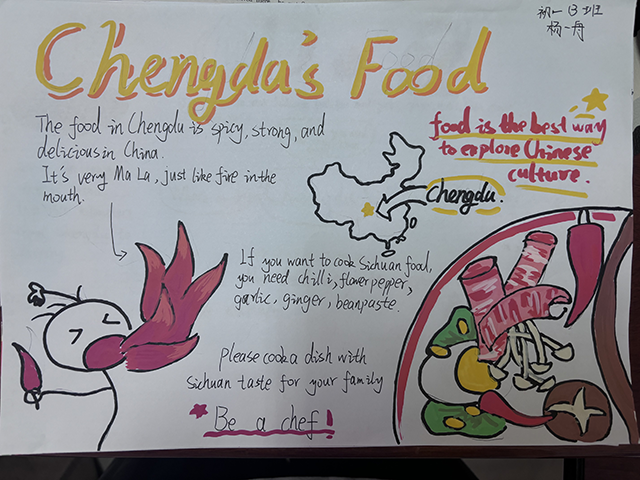 初一13班
杨一舟
Chengda's Food
The food in Chengdu is spicy, strong, and
delicious in China.
It's very Ma La, just like fire in the
mouth.
food is the best way
to explore Chinese
culture.
Chengdu.
If you want to cook Sichuan food,
you need chilli, flower pepper,
garlic, ginger, bean paste.
please cook a dish with
Sichuan taste for your family
Be a chef!